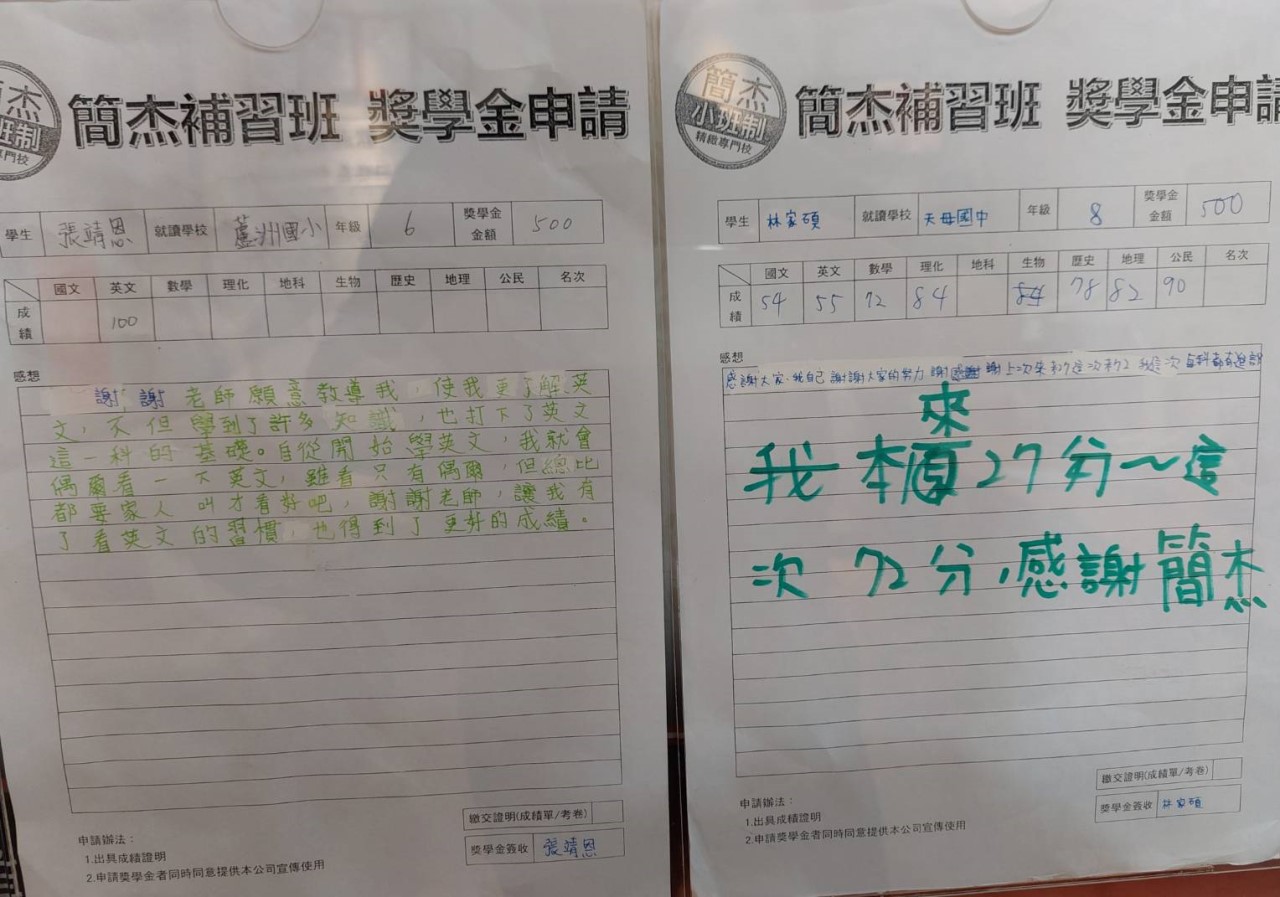 簡杰
班制
專門校
簡杰補習班 獎學金申請
學生 張靖恩 就讀學校 蘆洲國小 年級 6 獎學金金額 500
國文 英文 數學 理化 地科 生物 歷史 地理 公民 名次
成績 100
感想
謝謝老師願意教導我，使我更了解英
文，不但學到了許多知識，也打下了英文
這一科的基礎。自從開始學英文，我就會
偶爾看一下英文，雖看只有偶爾，但總比
都要家人叫才看好吧，謝謝老師，讓我有
了看英文的習慣，也得到了更好的成績。
繳交證明(成績單/考卷)
獎學金簽收 張靖恩
申請辦法：
1.出具成績證明
2.申請獎學金者同時同意提供本公司宣傳使用
簡杰
小班制
精緻專門校
簡杰補習班 獎學金申請
學生 林家碩 就讀學校 天母國中 年級 8 獎學金金額 500
國文 英文 數學 理化 地科 生物 歷史 地理 公民 名次
成績 54 55 72 84 84 78 82 90
感想
感謝大家、我自己 謝謝大家的努力 謝 謝 上次來 27 這次 72 我這次 每科都有進
來
我 本 27分～這
次 72分，感謝簡杰
繳交證明(成績單/考卷)
獎學金簽收 林家碩
申請辦法：
1.出具成績證明
2.申請獎學金者同時同意提供本公司宣傳使用